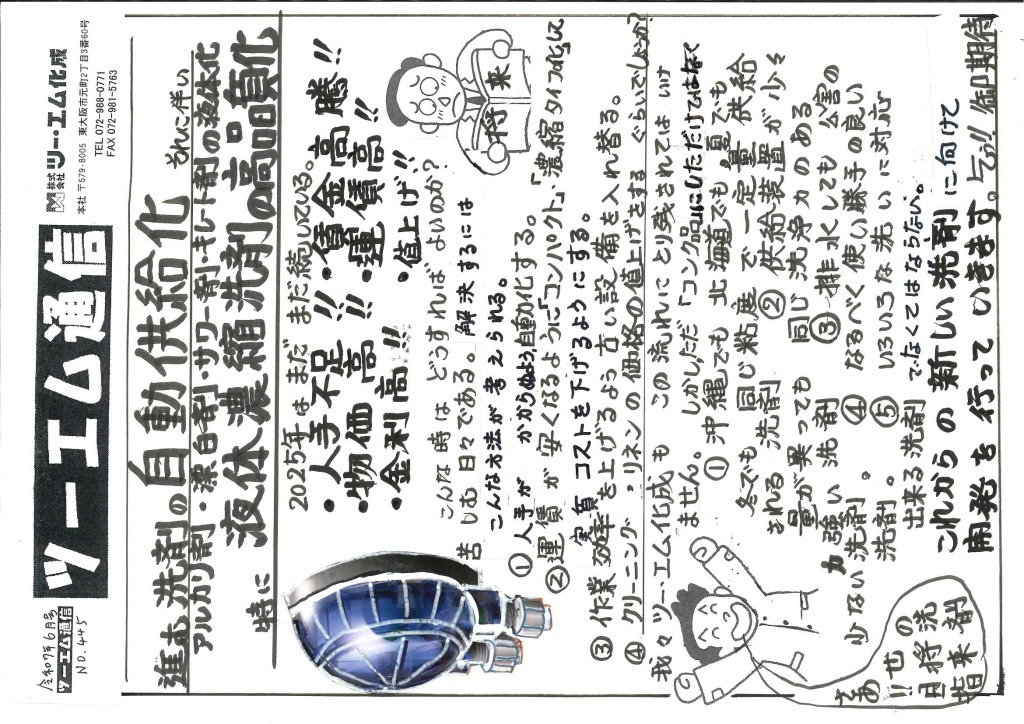 令和7年6月号
ツーエム通信
NO.445
ツーエム通信
株式会社 ツー・エム化成
本社 〒579-8005 東大阪市元町2丁目3番60号
TEL 072-988-0771
FAX 072-981-5763
進む 洗剤の自動供給化 それに伴い
アルカリ剤・漂白剤・サワー剤・キレート剤の液体化
特に 液体濃縮洗剤の高品質化
2025年は まだ まだ 続いている。
・人手不足!! ・賃金高騰!!
・物価高!! ・運賃高!!
・金利高!! ・値上げ!!
将来
こんな時は どうすれば よいのか?
苦しむ日々である。解決するには
こんな方法が考えられる。
①人手が かからぬよう、自動化する。
②運賃が安くなるように「コンパクト」、「濃縮タイプ化」して
実質コストを下げるようにする。
③作業効率を上げるよう古い設備を入れ替る。
④クリーニング・リネンの価格の値上げをするぐらいでしょうか?
我々ツー・エム化成も この流れにとり残されては いけ
ません。しかし、ただ「コンク品」にしただけではなく
①沖縄でも 北海道でも 夏でも
冬でも 同じ粘度で一定量 供給
される 洗剤 ②供給装置が少々
量が異っても 同じ洗浄力のある
力強い 洗剤 ③排水しても 公害の
少ない洗剤。④なるべく使い勝手の良い
洗剤。⑤いろいろな洗いに対応
出来る洗剤でなくてはならない。
これからの 新しい洗剤に向けて
開発を行っていきます。乞う!! 御期待
さあ
目指せ!!
将来の
洗剤